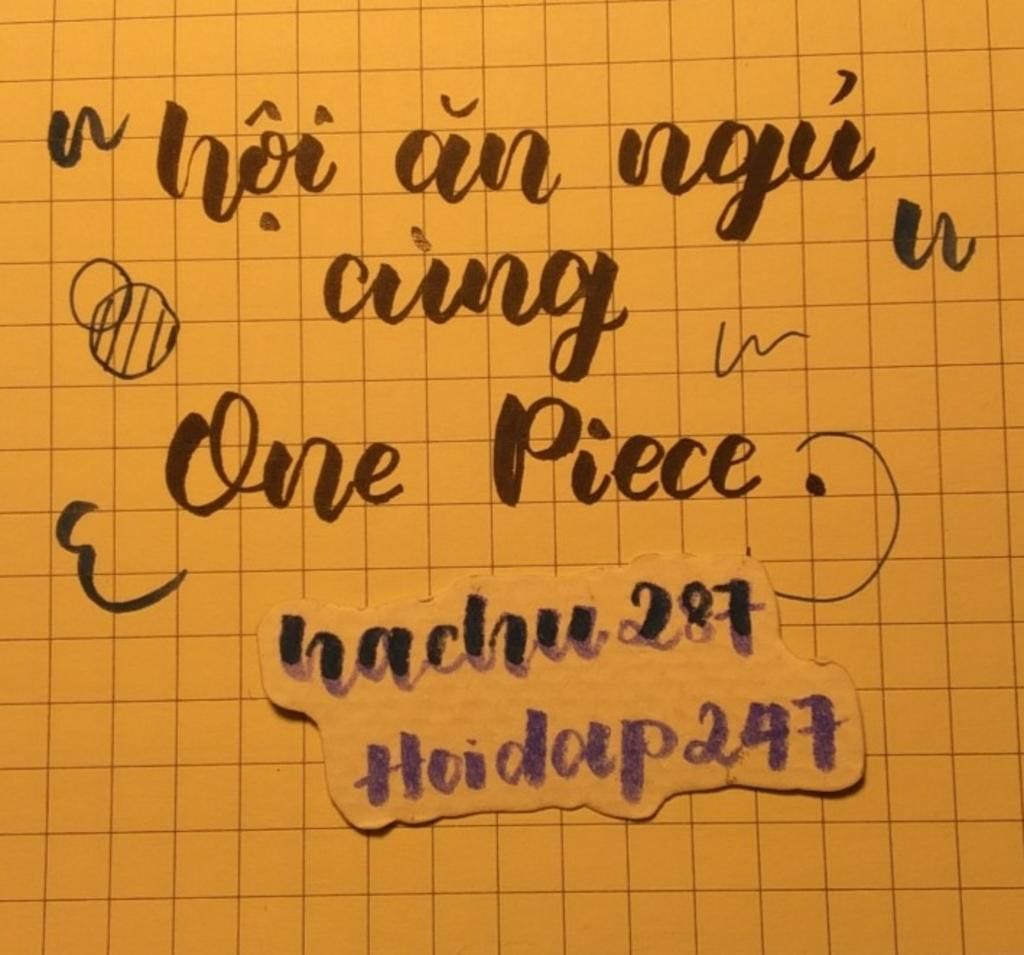 hội ăn ngủ
cùng
One Piece.
hachu287
Hoidap247